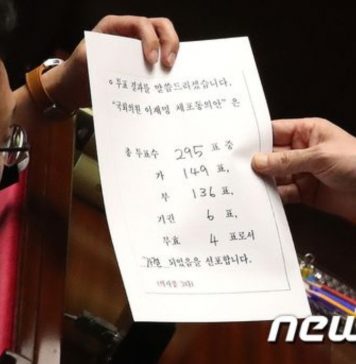 o 투표 결과를 말씀드리겠습니다.
"국회의원 이재명 체포동의안" 은
총 투표수 295 표 중
가 149 표,
부 136 표,
기권 6 표,
무효 4 표로서
가결 되었음을 선포합니다.
new